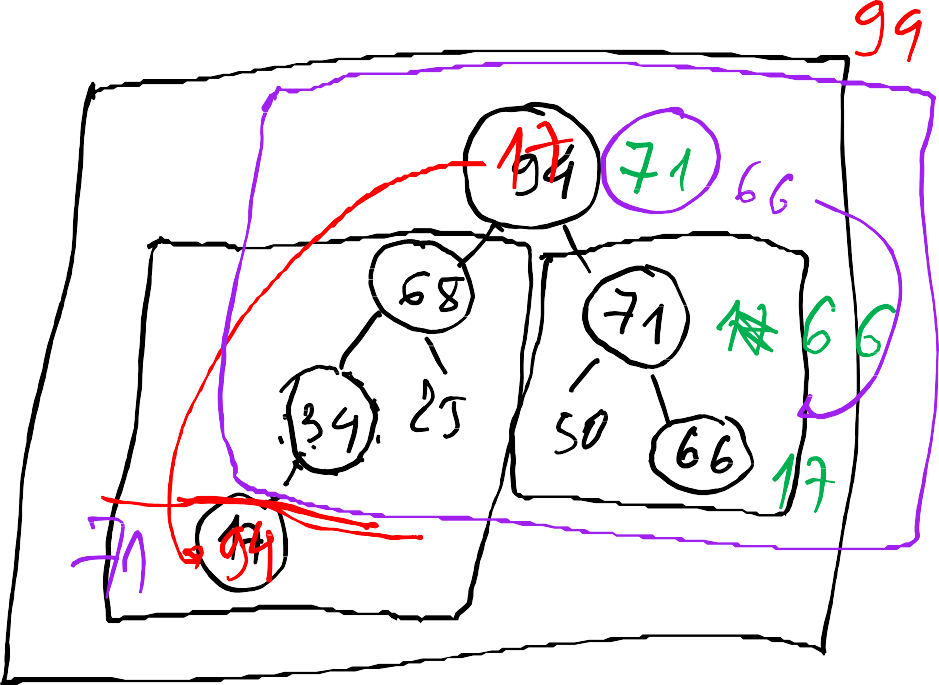 99
17 94 71 66
68 71 17 66
34 25 50 66
17
71 17 94